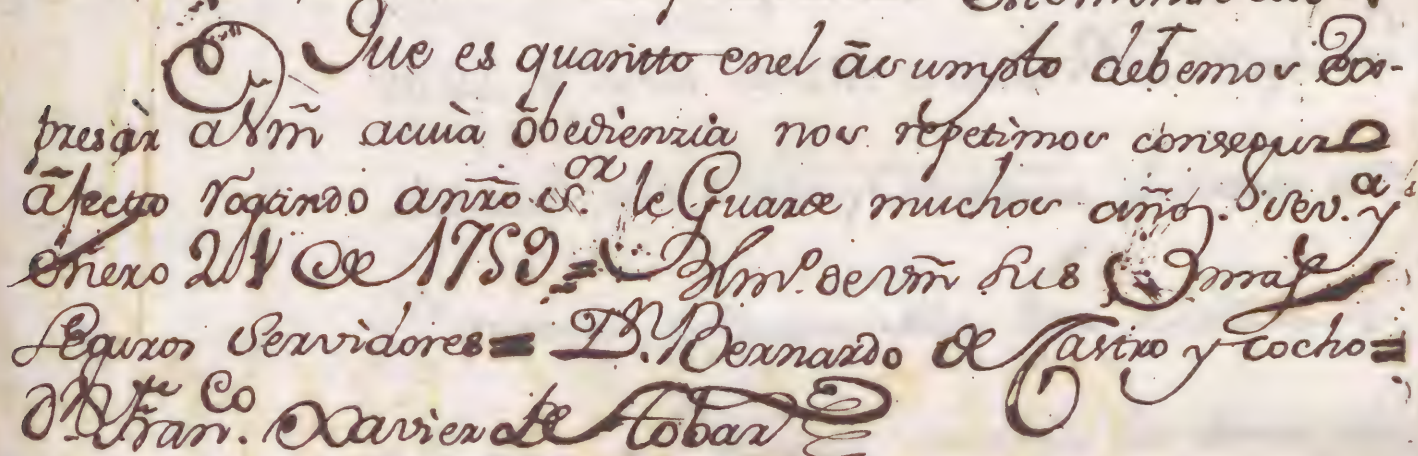 Que es quantto enel ãcumpto debemos Ex-
presàr aVm̃ acuià õbedienzia nos repetimos conseguro
ãfectto rogando anr̃o Sor. le Guarde muchos años. Seva. y
enero 21 de 1759 = Blmo. de Vm̃ sus mas
seguros Servidores = Dn. Bernardo de Castro y Cocho =
Dn. Franco. Xavier de Tobar